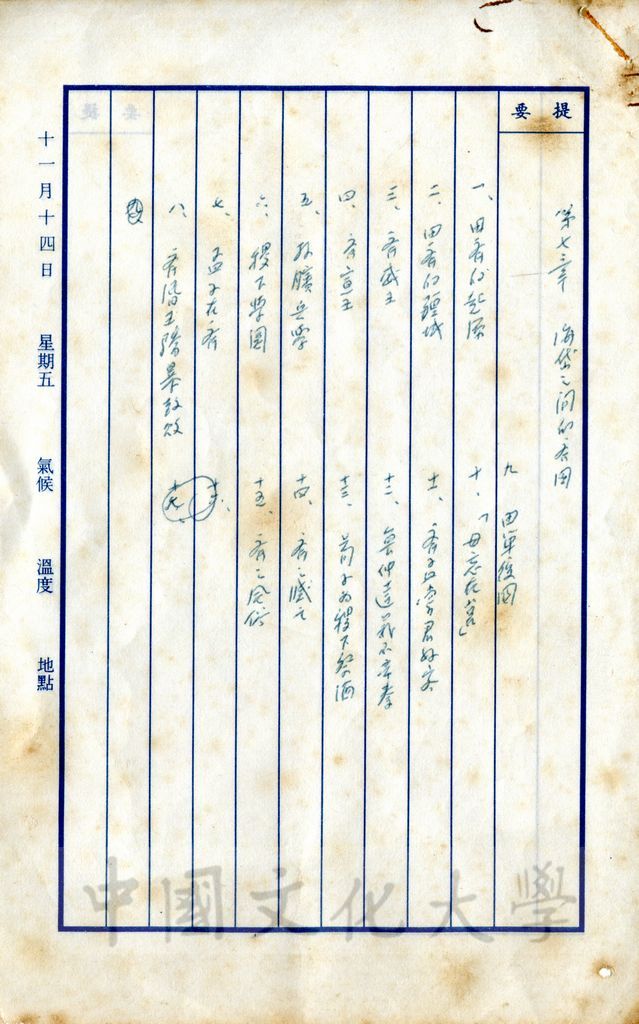 提要
第七章 海岱之間的齊國
一、田齊的起源
二、田齊的疆域
三、齊威王
四、齊宣王
五、孫臏兵學
六、稷下學園
七、孟子在齊
八、齊湣王驕暴致敗
九、田單復國
十、「毋忘在莒」
十一、齊孟嘗君好客
十二、魯仲連義不帝秦
十三、荀子為稷下祭酒
十四、齊之滅亡
十五、齊之風俗
十一月十四日 星期五 氣候 溫度 地點
中國文化大學